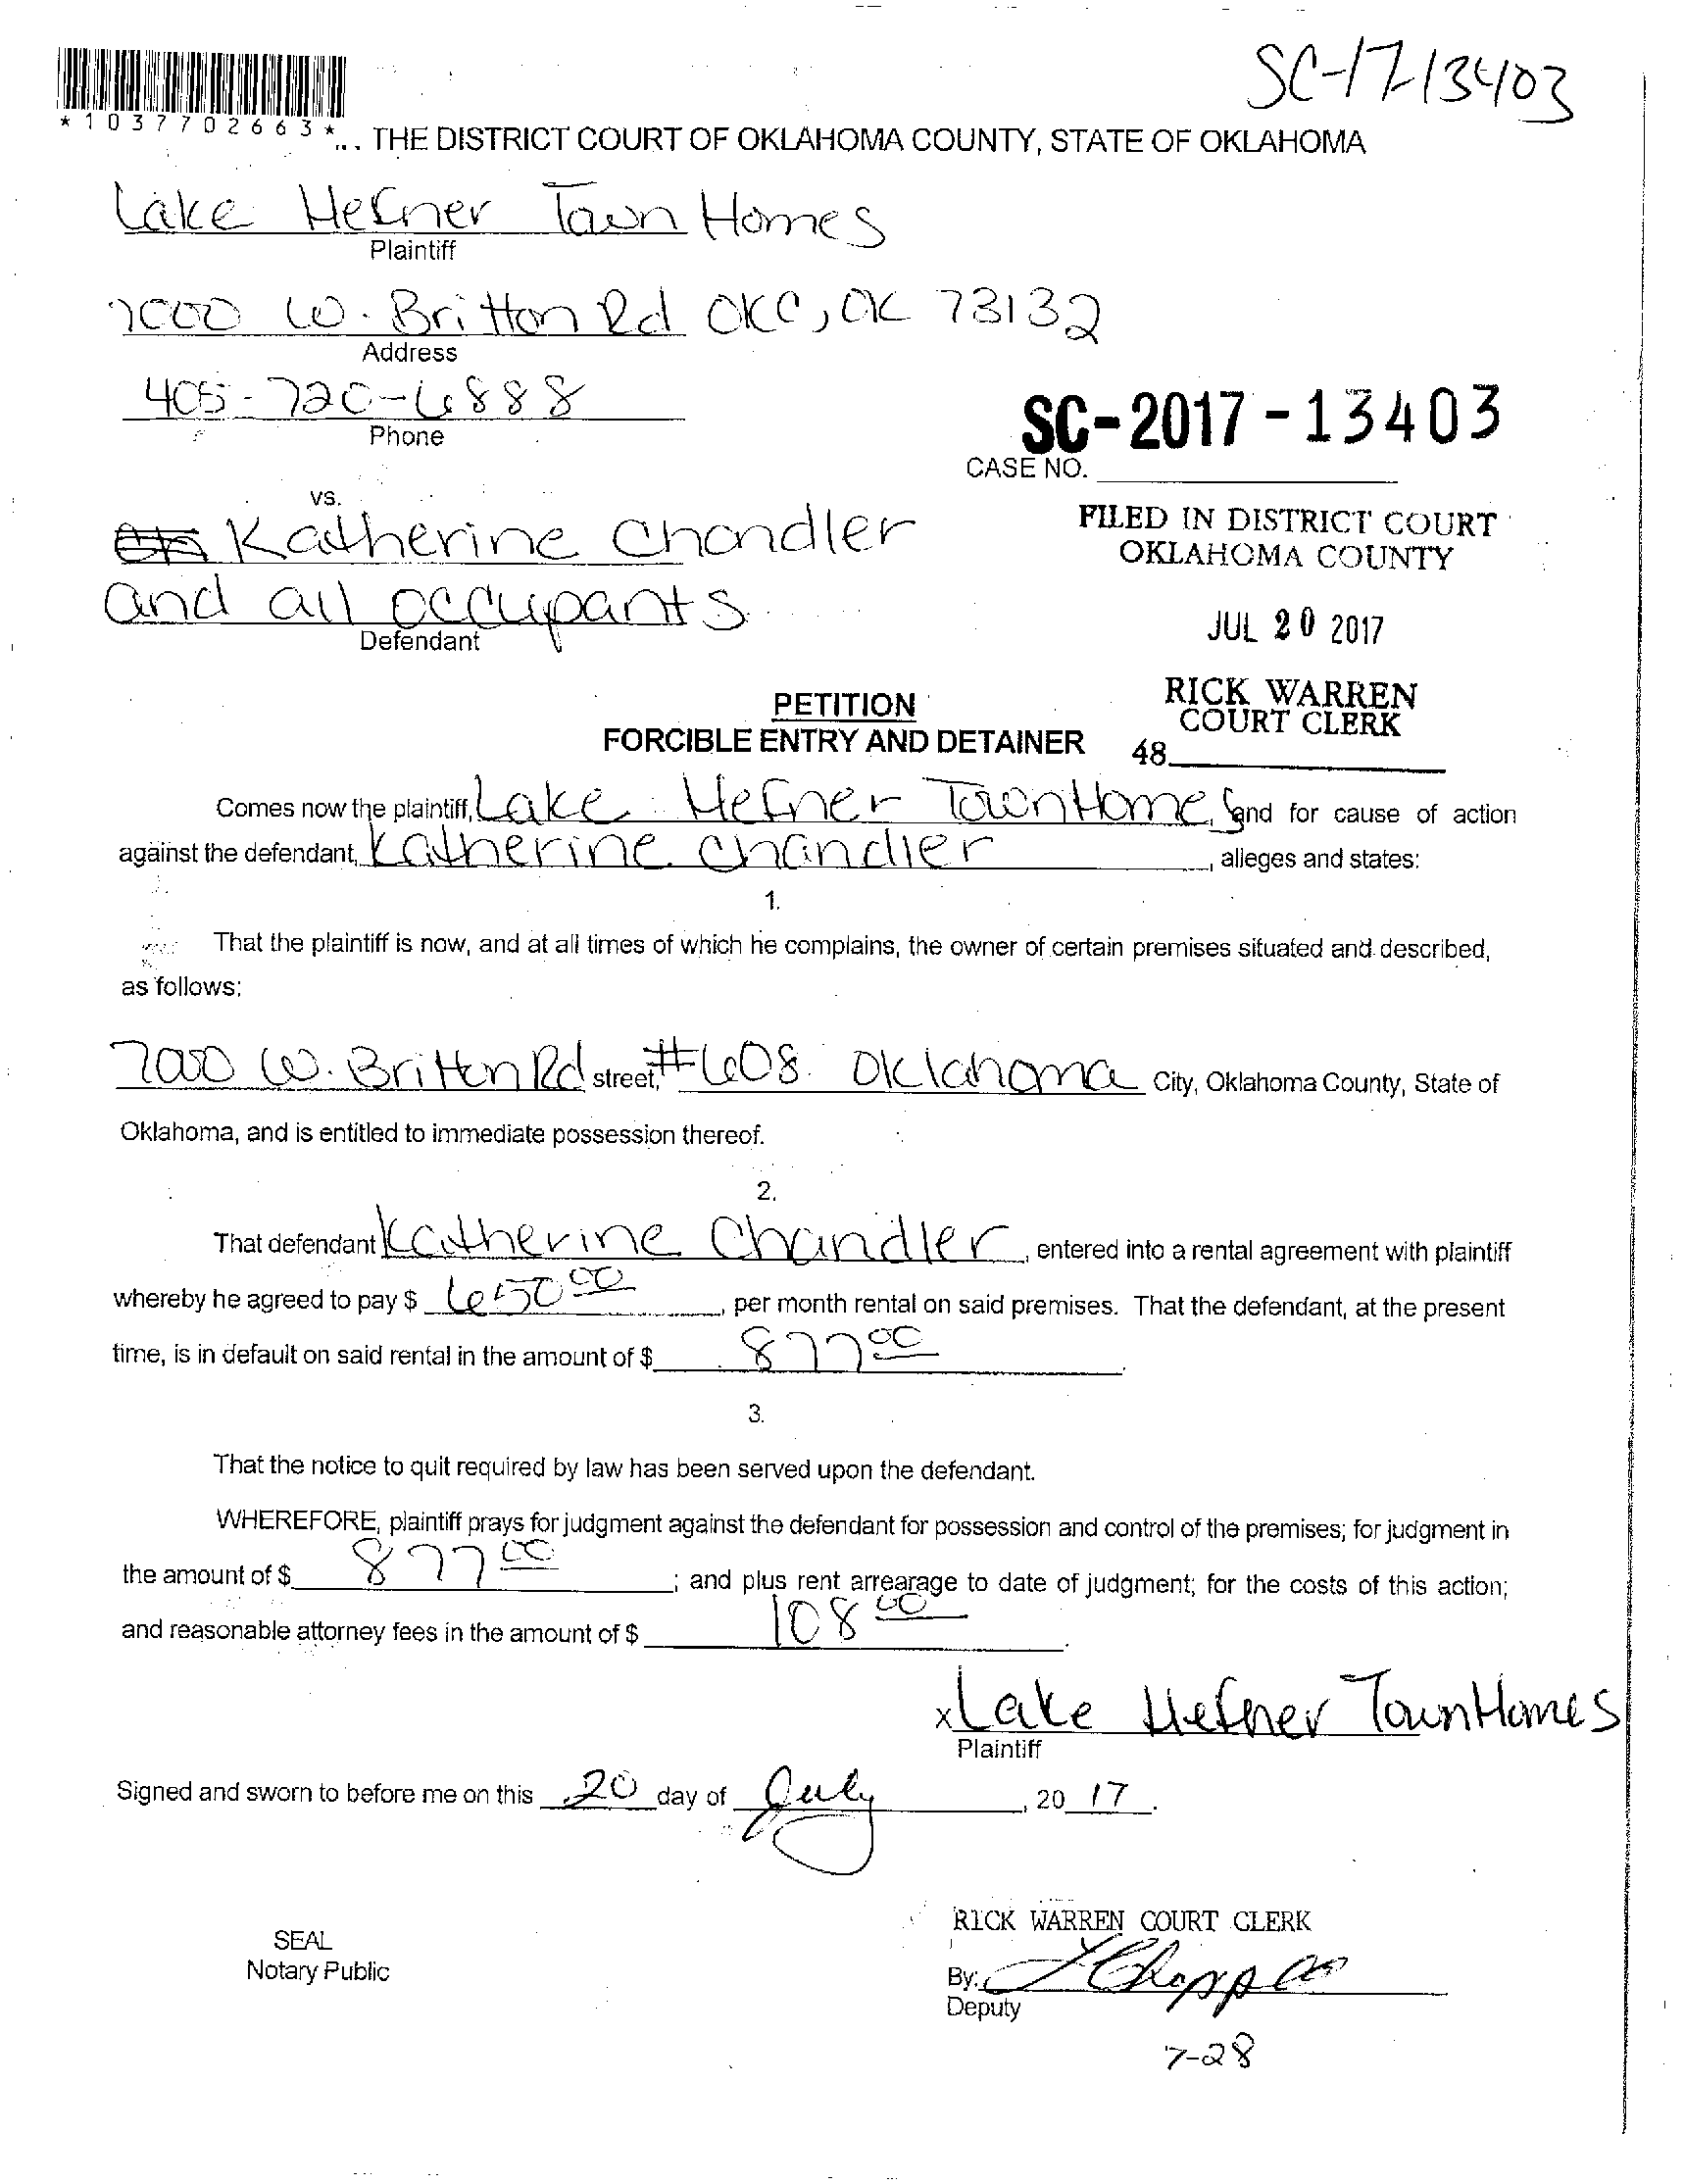 SC-17-13403
*1037702663*
THE DISTRICT COURT OF OKLAHOMA COUNTY, STATE OF OKLAHOMA
Lake Hefner Town Homes
Plaintiff
7000 W. Britton Rd OKC, OK 73132
Address
405-720-6888
Phone
SC-2017-13403
CASE NO.
vs.
Katherine Chandler
and all occupants
Defendant
FILED IN DISTRICT COURT
OKLAHOMA COUNTY
JUL 20 2017
RICK WARREN
COURT CLERK
48
PETITION
FORCIBLE ENTRY AND DETAINER
Comes now the plaintiff, Lake Hefner TownHomes, and for cause of action
against the defendant, Katherine Chandler, alleges and states:
1.
That the plaintiff is now, and at all times of which he complains, the owner of certain premises situated and described,
as follows:
7000 W. Britton Rd street, #608 Oklahoma City, Oklahoma County, State of
Oklahoma, and is entitled to immediate possession thereof.
2.
That defendant Katherine Chandler, entered into a rental agreement with plaintiff
whereby he agreed to pay $ 650.00, per month rental on said premises. That the defendant, at the present
time, is in default on said rental in the amount of $ 877.00.
3.
That the notice to quit required by law has been served upon the defendant.
WHEREFORE, plaintiff prays for judgment against the defendant for possession and control of the premises; for judgment in
the amount of $ 877.00; and plus rent arrearage to date of judgment; for the costs of this action;
and reasonable attorney fees in the amount of $ 108.00.
x Lake Hefner TownHomes
Plaintiff
Signed and sworn to before me on this 20 day of July, 20 17.
RICK WARREN COURT CLERK
SEAL
Notary Public
By:
Deputy
7-28